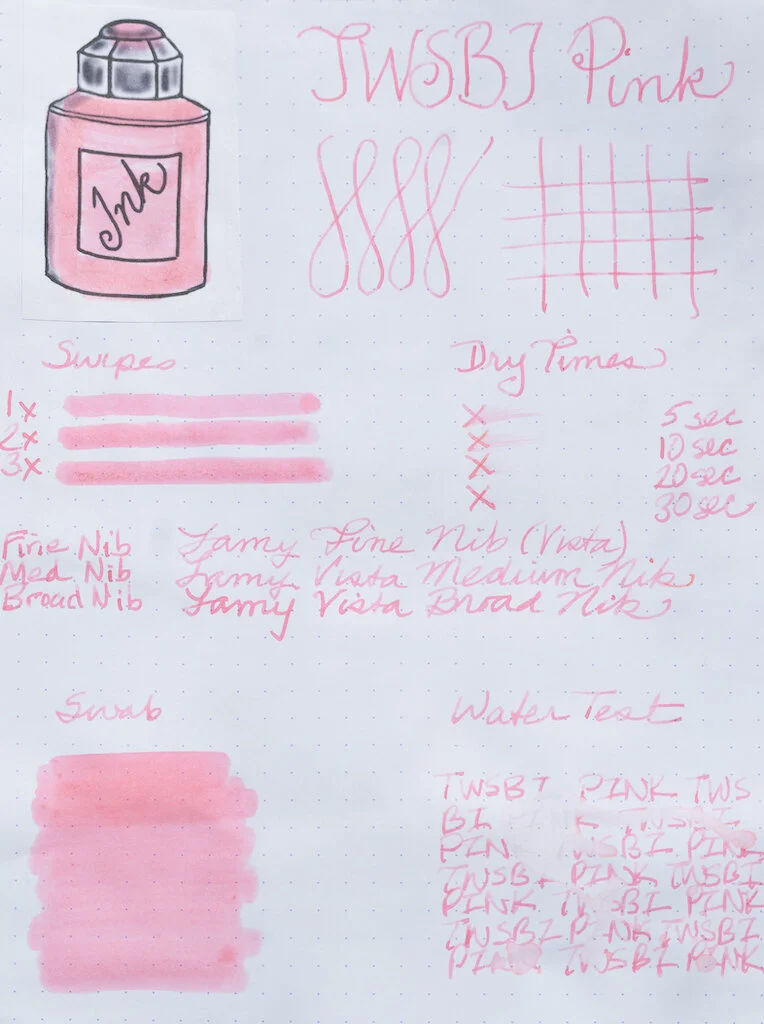 TWSBI Pink
Ink
Swipes
1x
2x
3x
Dry Times
X 5 sec
X 10 sec
X 20 sec
X 30 sec
Fine Nib Lamy Fine Nib (Vista)
Med Nib Lamy Vista Medium Nib
Broad Nib Lamy Vista Broad Nib
Swab
Water Test
TWSBI PINK TWS
BI K TWSBI
PIN TWSBI PINK
TWSBI PINK TWSBI
PINK TWSBI PINK
TWSBI PINK TWSBI
PINK TWSBI PINK